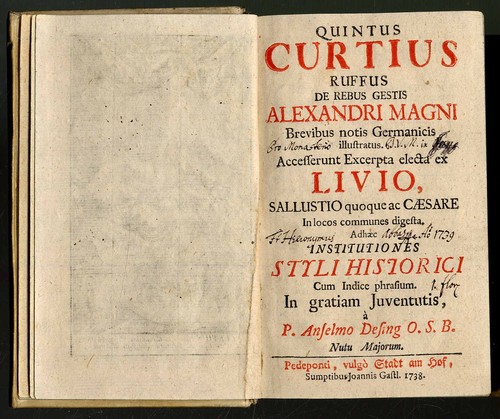 QUINTUS
CURTIUS
RUFFUS
DE REBUS GESTIS
ALEXANDRI MAGNI
Brevibus notis Germanicis
Pro Monasterio illustratus. B.V.M. ix
Accesserunt Excerpta electa ex
LIVIO,
SALLUSTIO quoque ac CÆSARE
In locos communes digesta.
Fr Hieronymus Adhæc Ao 1739
INSTITUTIONES
STYLI HISTORICI
Cum Indice phrasium.
In gratiam Juventutis,
à
P. Anselmo Desing O. S. B.
Nutu Majorum.
Pedeponti, vulgò Stadt am Hof,
Sumptibus Joannis Gastl. 1738.